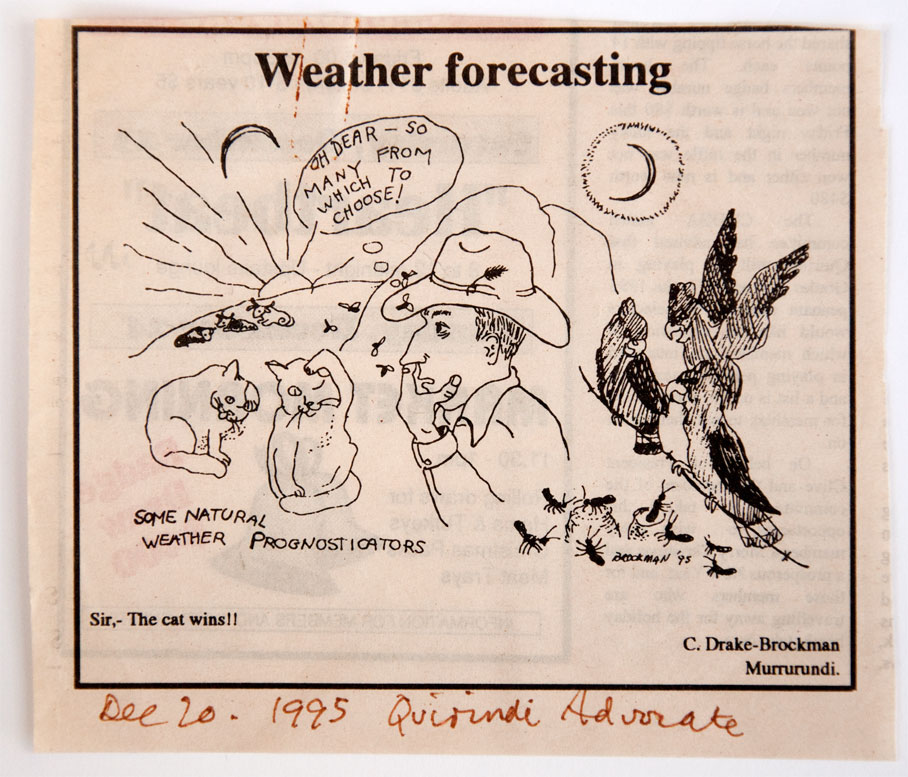 Weather forecasting
OH DEAR – SO
MANY FROM
WHICH TO
CHOOSE!
SOME NATURAL
WEATHER PROGNOSTICATORS
BROCKMAN '95
Sir,- The cat wins!!
C. Drake-Brockman
Murrurundi.
Dec 20. 1995 Quirindi Advocate